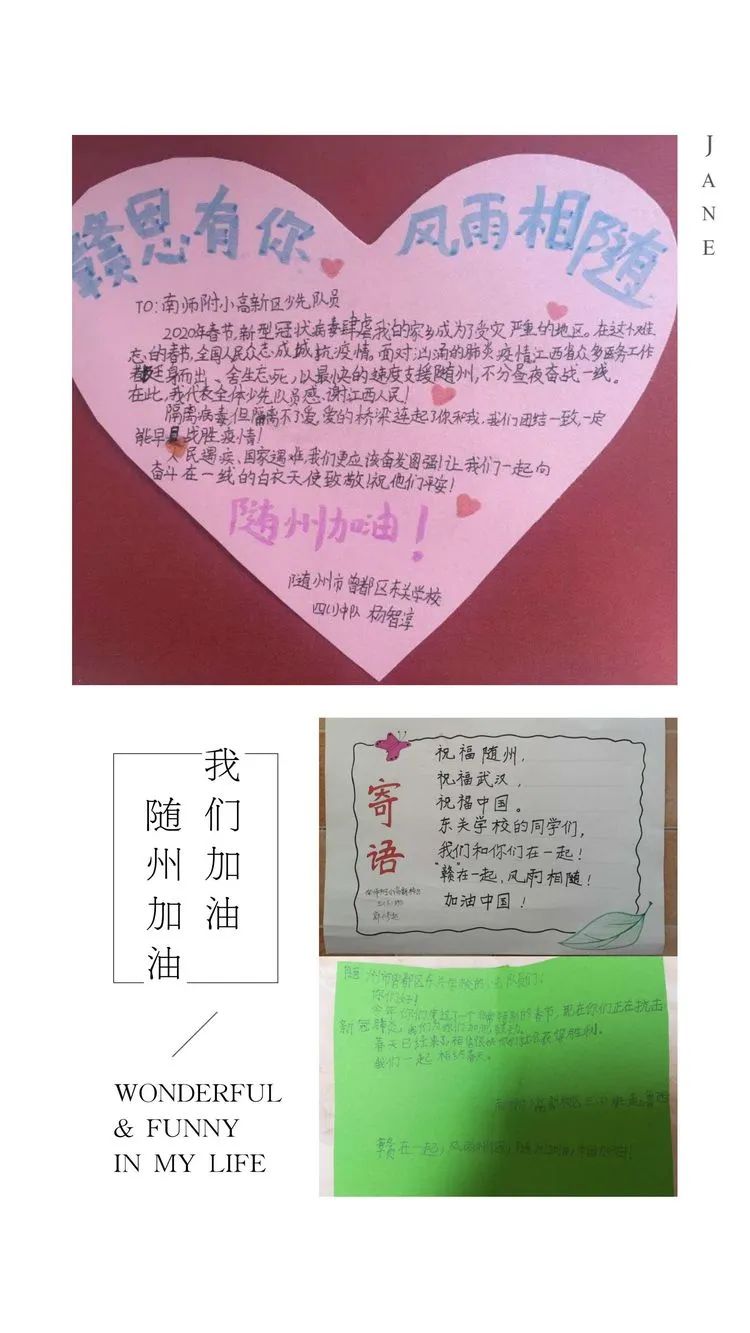 JANE
赣恩有你 风雨相随
TO:南师附小高新区少先队员
2020年春节,新型冠状病毒肆虐,我的家乡成为了受灾严重的地区。在这个难
忘的春节,全国人民众志成城抗疫情。面对汹涌的肺炎疫情,江西省众多医务工作
者挺身而出、舍生忘死,以最快的速度支援随州,不分昼夜奋战一线。
在此,我代表全体少先队员感谢江西人民!
隔离病毒但隔离不了爱,爱的桥梁连起了你和我,我们团结一致,一定
能早日战胜疫情!
人民遇疾、国家遇难,我们更应该奋发图强!让我们一起向
奋斗在一线的白衣天使致敬!祝他们平安!
随州加油!
随州市曾都区东关学校
四(1)中队 杨智淳
我们加油
随州加油
WONDERFUL
& FUNNY
IN MY LIFE
寄语
祝福随州,
祝福武汉,
祝福中国。
东关学校的同学们,
我们和你们在一起!
“赣”在一起,风雨相随!
加油中国!
随州市曾都区东关学校的少先队员们:
你们好!
今年你们度过了一个非常特别的春节,现在你们正在抗击
新冠肺炎,我们为你们加油鼓劲。
春天已经来了,相信很快你们就会获得胜利。
我们一起相约春天。
赣在一起,风雨相随,随州加油,中国加油!